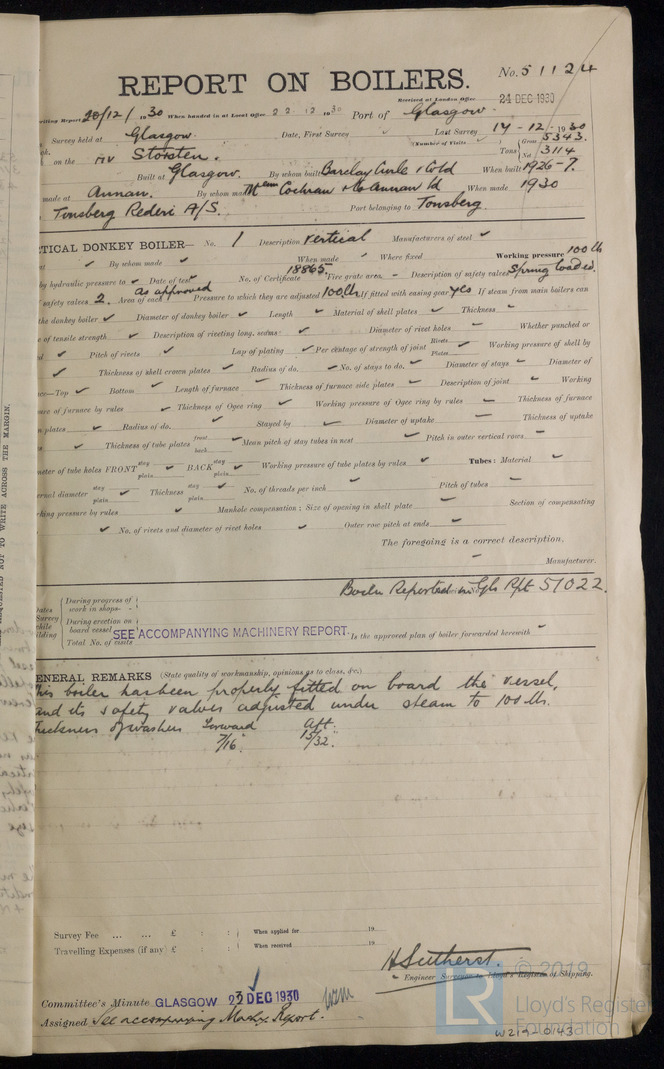 No. 51124
REPORT ON BOILERS.
Received at London Office 24 DEC 1930
writing Report 20/12/1930 When handed in at Local Office 22 12 1930 Port of Glasgow
Survey held at Glasgow. Date, First Survey Last Survey 17-12-1930
(Number of Visits ) Tons Gross 5343. Net 3114
on the Storsten.
Built at Glasgow. By whom built Barclay Curle & Co Ld When built 1926-7.
made at Annan. By whom made Cochran & Co Annan Ld When made 1930
Tonsberg Rederi A/S. Port belonging to Tonsberg.
TICAL DONKEY BOILER— No. 1 Description Vertical Manufacturers of steel ✓
at ✓ By whom made ✓ When made ✓ Where fixed Working pressure 100 lb
by hydraulic pressure to ✓ Date of test No. of Certificate 18865. Fire grate area – Description of safety valves Spring loaded.
safety valves 2. Area of each as approved Pressure to which they are adjusted 100 lb. If fitted with easing gear yes If steam from main boilers can
the donkey boiler ✓ Diameter of donkey boiler ✓ Length ✓ Material of shell plates ✓ Thickness –
e of tensile strength ✓ Description of riveting long. seams ✓ Diameter of rivet holes – Whether punched or
d ✓ Pitch of rivets ✓ Lap of plating ✓ Per centage of strength of joint Rivets Plates ✓ Working pressure of shell by
✓ Thickness of shell crown plates ✓ Radius of do. ✓ No. of stays to do. ✓ Diameter of stays – Diameter of
ce—Top ✓ Bottom ✓ Length of furnace ✓ Thickness of furnace side plates ✓ Description of joint – Working
ure of furnace by rules ✓ Thickness of Ogee ring ✓ Working pressure of Ogee ring by rules – Thickness of furnace
n plates ✓ Radius of do. ✓ Stayed by ✓ Diameter of uptake – Thickness of uptake
✓ Thickness of tube plates front back ✓ Mean pitch of stay tubes in nest ✓ Pitch in outer vertical rows –
meter of tube holes FRONT stay plain ✓ BACK stay plain ✓ Working pressure of tube plates by rules ✓ Tubes: Material ✓
ernal diameter stay plain ✓ Thickness stay plain ✓ No. of threads per inch ✓ Pitch of tubes –
king pressure by rules ✓ Manhole compensation: Size of opening in shell plate ✓ Section of compensating
✓ No. of rivets and diameter of rivet holes ✓ Outer row pitch at ends ✓
The foregoing is a correct description,
– Manufacturer.
Boiler Reported in Gls Rpt 51022.
Dates Survey while building
During progress of work in shops - -
During erection on board vessel
Total No. of visits
SEE ACCOMPANYING MACHINERY REPORT.
Is the approved plan of boiler forwarded herewith –
ENERAL REMARKS (State quality of workmanship, opinions as to class, &c.)
This boiler has been properly fitted on board the vessel,
and its safety valves adjusted under steam to 100 lbs.
Thickness of washers Forward Aft.
7/16. 15/32.
REQUESTED NOT TO WRITE ACROSS THE MARGIN.
Survey Fee ... ... £ : : When applied for 19
Travelling Expenses (if any) £ : : When received 19
H Sutherst
Engineer Surveyor to Lloyd's Register of Shipping.
Committee's Minute GLASGOW 23 DEC 1930
Assigned See accompanying Machy Report.
© 2019
LR
Lloyd's Register
Foundation
W219-0143